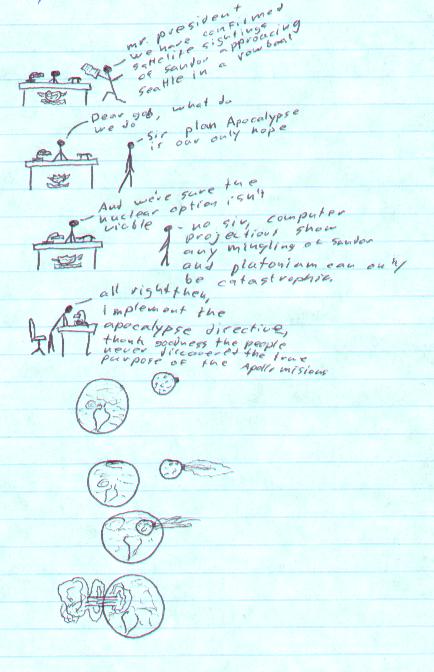 mr. president
we have confirmed
satellite sightings
of sandor approacing
seattle in a rowboat
Dear god, what do
we do
Sir plan Apocalypse
is our only hope
And we're sure the
nuclear option isn't
viable
no sir, computer
projections show
any mingling of sandor
and plutonium can only
be catastrophic.
all right then,
implement the
apocalypse directive,
thank goodness the people
never discovered the true
purpose of the Apollo misions